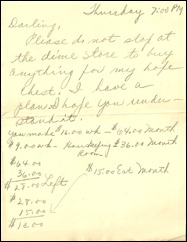 Thursday 7:00 PM
Darling,
Please do not stop at
the dime store to buy
anything for my hope
chest. I have a
plan & hope you under-
stand it.
you make $16.00 wk - $64.00 Month
$9.00 wk - Housekeeping $36.00 Month
Room
$64.00
36.00
$28.00 Left
$15.00 Month
$28.00
15.00